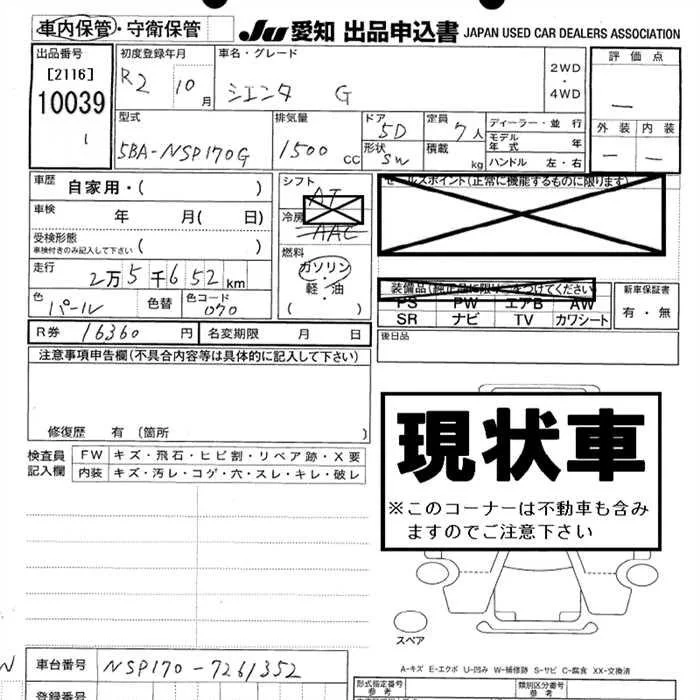 車内保管・守衛保管
JU 愛知 出品申込書 JAPAN USED CAR DEALERS ASSOCIATION
出品番号
[2116]
10039
1
初度登録年月
R2 10月
車名・グレード
シエンタ G
2WD
・
4WD
評価点
―
外装 内装
― ―
型式
5BA-NSP170G
排気量
1500 CC
ドア
5D
形状
SW
定員
7人
積載
kg
ディーラー・並行
モデル年式 年
ハンドル 左・右
車歴 自家用・( )
車検 年 月( 日)
受検形態
車検付きのみ記入して下さい ( )
走行
2万5千652km
色
パール
色替
色コード
070
R券 16360円 名変期限 月 日
シフト
AT
冷房
AAC
燃料
ガソリン・
軽・油
( )
セールスポイント(正常に機能するものに限ります)
装備品(純正品に限り○をつけてください)
PS PW エアB AW
SR ナビ TV カワシート
新車保証書
有・無
後日品
注意事項申告欄(不具合内容等は具体的に記入して下さい)
修復歴 有 (箇所 )
検査員記入欄
FW キズ・飛石・ヒビ割・リペア跡・X要
内装 キズ・汚レ・コゲ・穴・スレ・キレ・破レ
現状車
※このコーナーは不動車も含み
ますのでご注意下さい
スペア
A-キズ E-エクボ U-凹み W-補修跡 S-サビ C-腐食 XX-交換済
N
車台番号 NSP170-7261352
登録番号
形式指定番号
参考
類別区分番号
参考